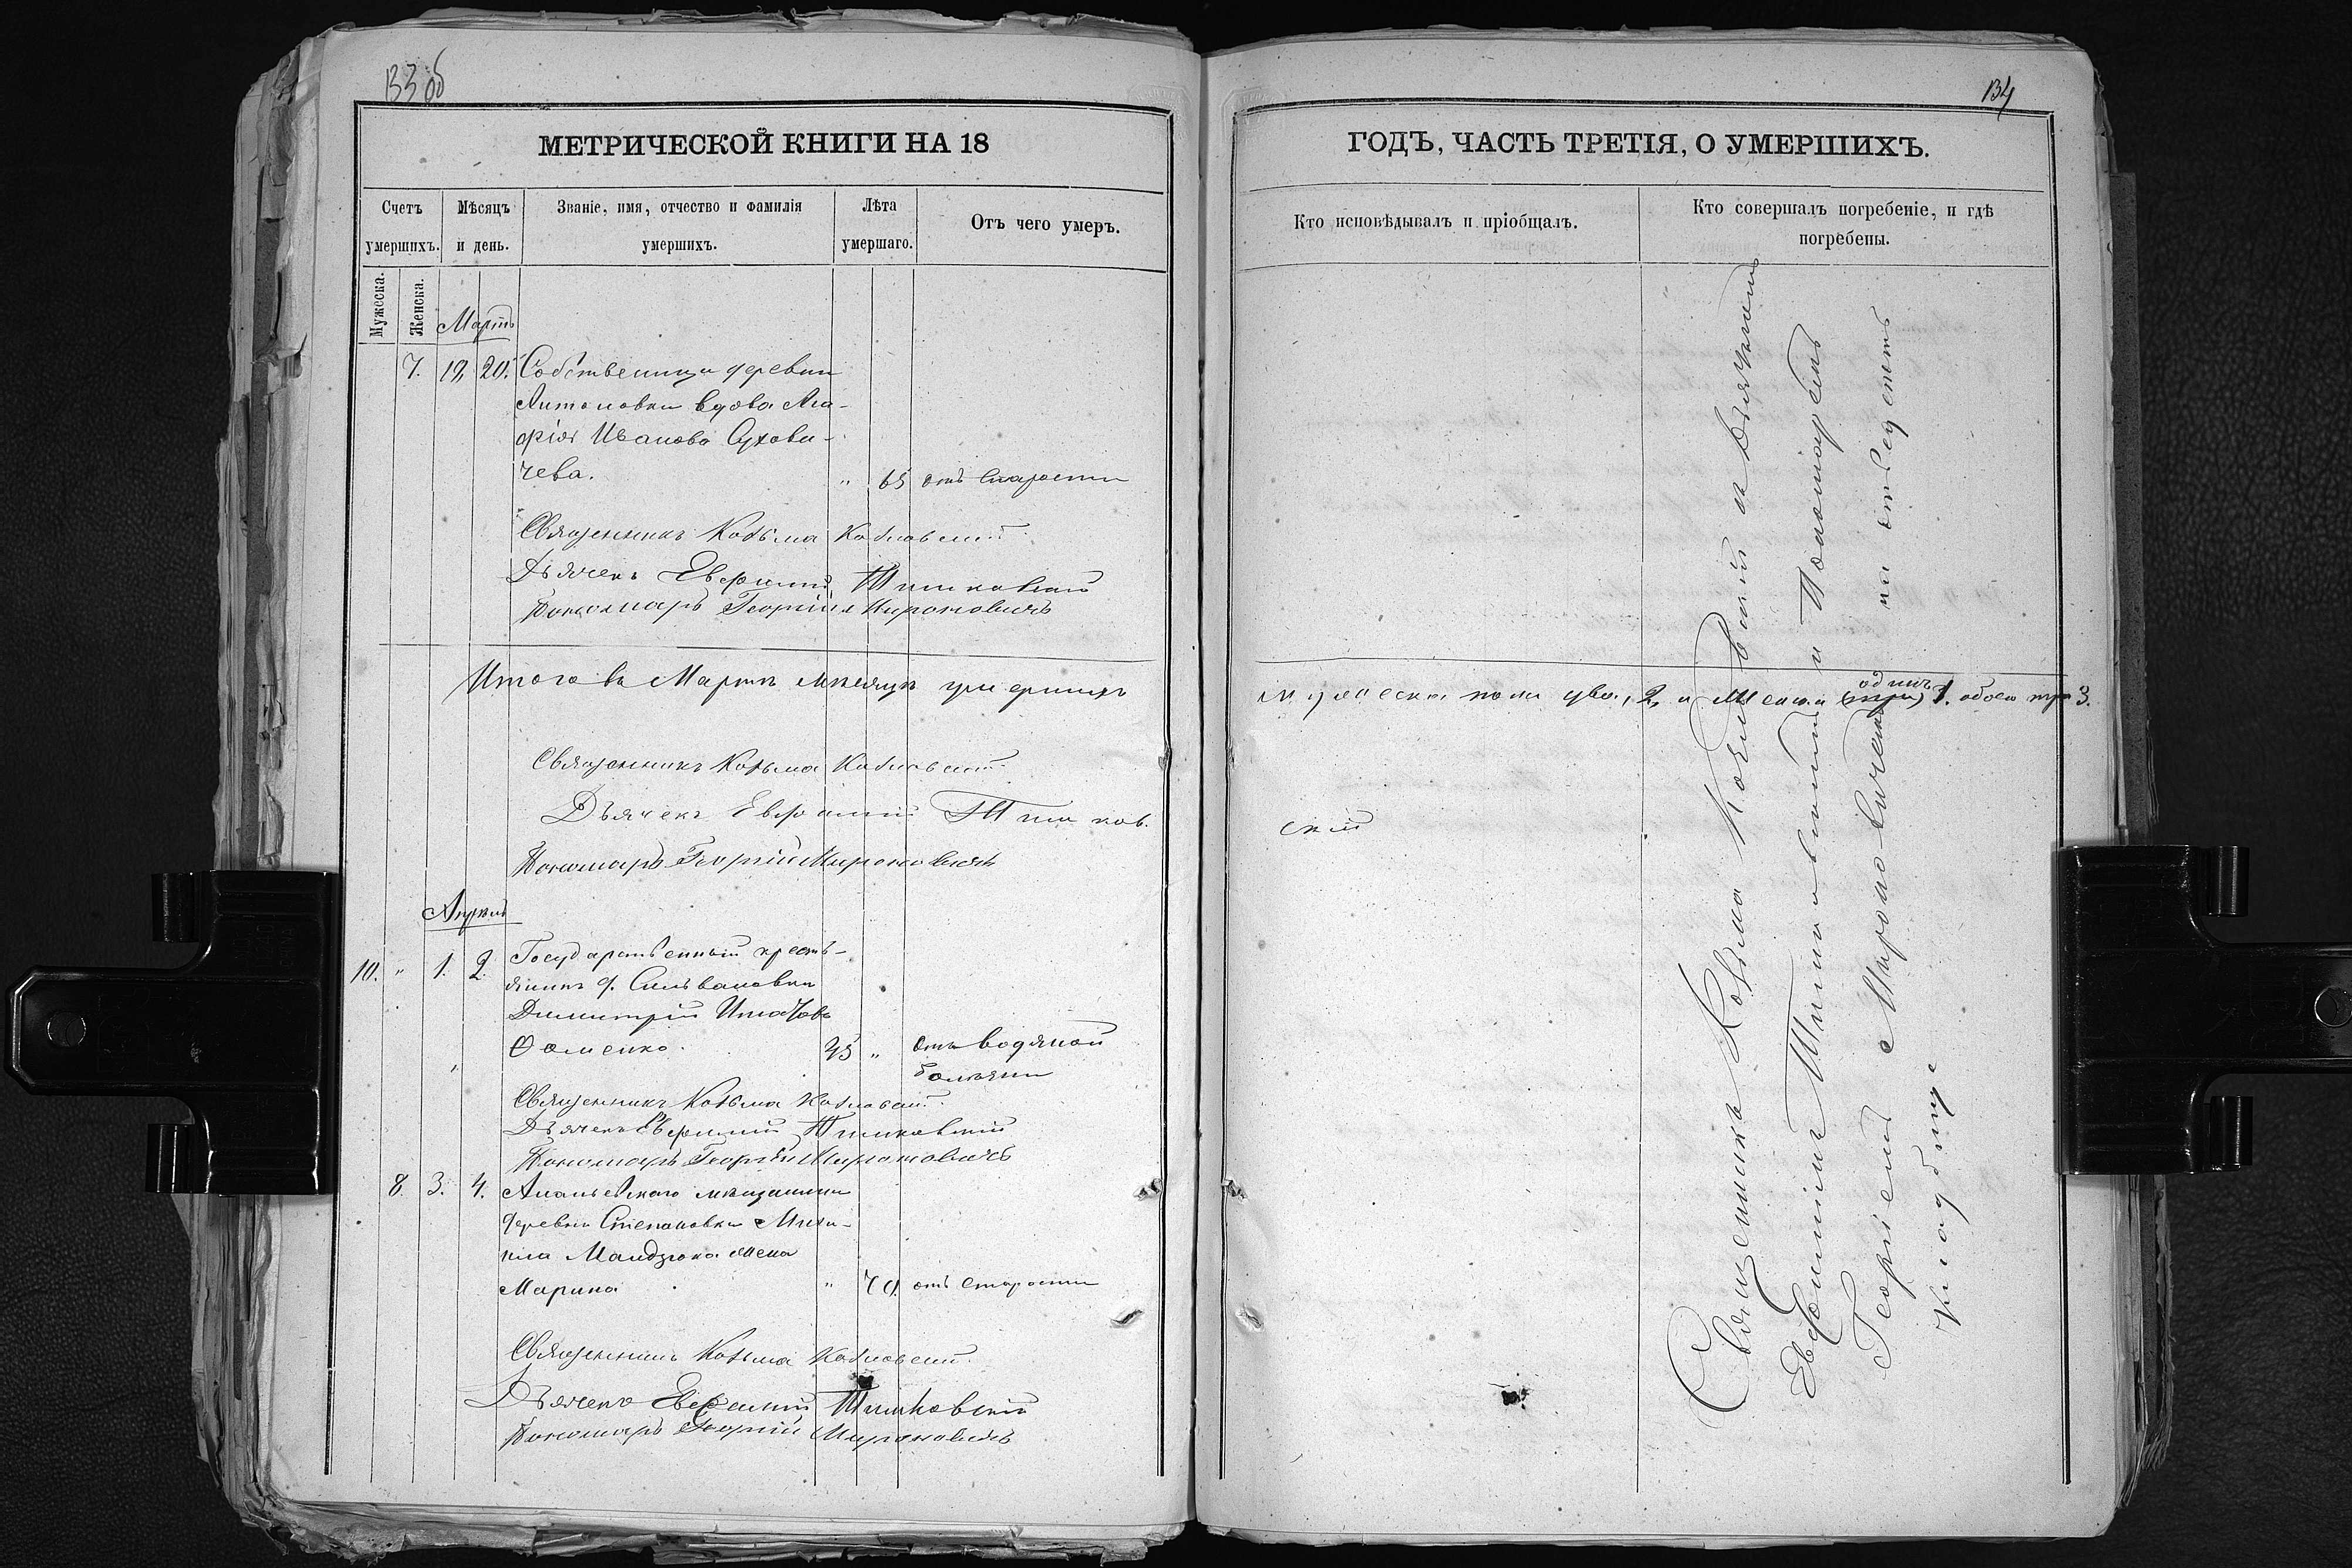 133 об
МЕТРИЧЕСКОЙ КНИГИ НА 18
Счетъ умершихъ.
Мѣсяцъ и день.
Званіе, имя, отчество и фамилія умершихъ.
Лѣта умершаго.
Отъ чего умеръ.
Мужеска.
Женска.
Мартъ
7. 19, 20. Собственница деревни
Антоновки вдова Ага-
фія Иванова Сухови-
чева. " 65 отъ старости
Священникъ Козьма Козловскій
Дьячекъ Евфимій Шпиковскій
Пономарь Георгій Мироновичъ
Итого въ Мартѣ мѣсяцѣ умершихъ
Священникъ Козьма Козловскій
Дьячекъ Евфимій Шпиков.
Пономарь Георгій Мироновичъ
Апрѣль
10. " 1. 2. Государственный кресть-
янинъ д. Сильвановки
Димитрій
Фоменко. 45 " отъ водяной
болѣзни
Священникъ Козьма Козловскій
Дьячекъ Евфимій Шпиковскій
Пономарь Георгій Мироновичъ
8. 3. 4. Ананьевскаго мѣщанина
деревни Степановки Миха-
ила Мандзюка жена
Марина " 70. отъ старости
Священникъ Козьма Козловскій
Дьячекъ Евфимій Шпиковскій
Пономарь Георгій Мироновичъ
134
ГОДЪ, ЧАСТЬ ТРЕТІЯ, О УМЕРШИХЪ.
Кто исповѣдывалъ и пріобщалъ.
Кто совершалъ погребеніе, и гдѣ погребены.
мужеска пола два, 2, и Женска (три) одинъ 1. обоего три 3.
скій
Священникъ Козьма Козловскій и Дьячекъ
Евфимій Шпиковскій и Пономарь
Георгіемъ Мироновичемъ на отведенъ
Кладбище